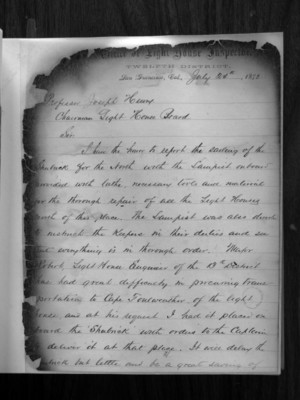 Office of Light House Inspector,
TWELFTH DISTRICT,
San Francisco, Cal. July 20th, 187
Professor Joseph Henry
Chairman Light House Board
Sir
I have the honor to report the sailing of the
for the North with the Lampist on board
provided with all the necessary tools and material
for the thorough repair of all the Light Houses
north of this place. The Lampist was also directed
to instruct the Keepers in their duties and see
that everything is in thorough order. Major
Light House Engineer of the 13th District
has had great difficulty in procuring trans
portation to Cape Foulweather of the Light
House and at his request I had it placed on
board the "Shubrick" with orders to the Captain
to deliver it at that place. It will delay the
Shubrick but little and be a great saving of